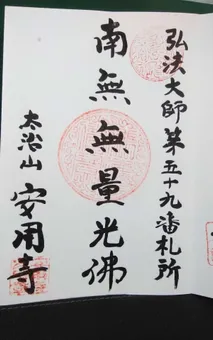 弘法大師第五十九番札所
南無無量光佛
太治山 安用寺